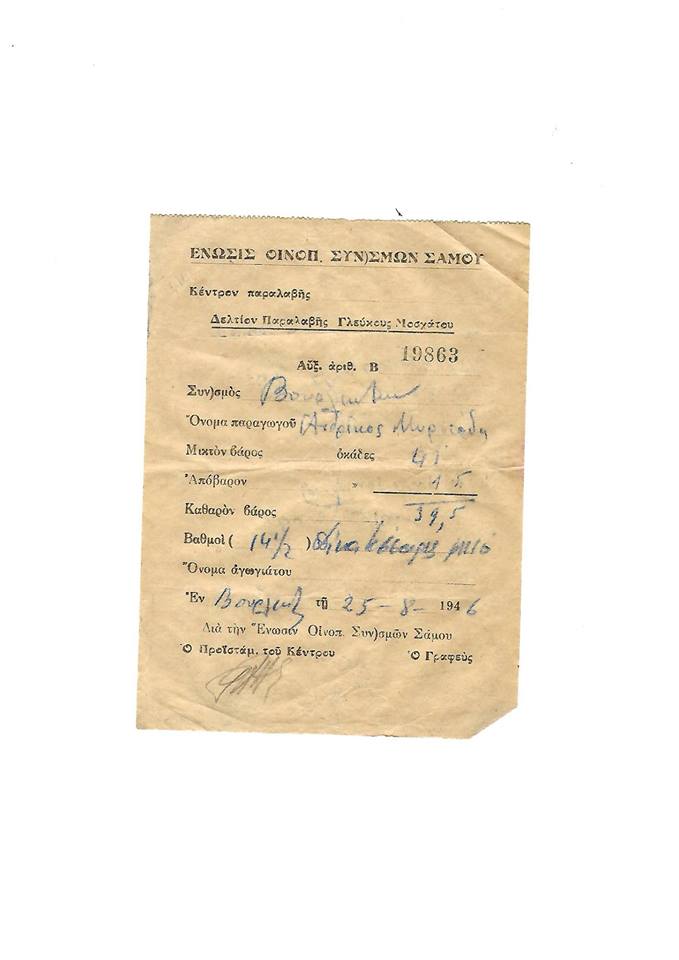 ΕΝΩΣΙΣ ΟΙΝΟΠ. ΣΥΝ)ΣΜΩΝ ΣΑΜΟΥ
Κέντρον παραλαβῆς
Δελτίον Παραλαβῆς Γλεύκους Μοσχάτου
Αὔξ. ἀριθ. Β 19863
Συν)σμὸς
Ὄνομα παραγωγοῦ
Μικτὸν βάρος ὀκάδες 41
Ἀπόβαρον » 1 5
Καθαρὸν βάρος 39,5
Βαθμοὶ ( 14 1/2 )
Ὄνομα ἀγωγιάτου
Ἐν τῇ 25-8- 1946
Διὰ τὴν Ἕνωσιν Οἰνοπ. Συν)σμῶν Σάμου
Ὁ Προϊστάμ. τοῦ Κέντρου Ὁ Γραφεὺς